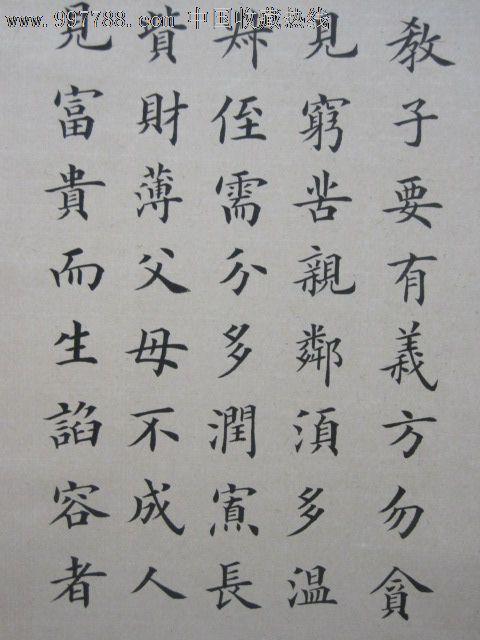 www.997788.com 中国收藏热线
教子要有義方勿貪
見窮苦親鄰須多温
叔侄需分多潤寡長
財薄父母不成人
見富貴而生諂容者